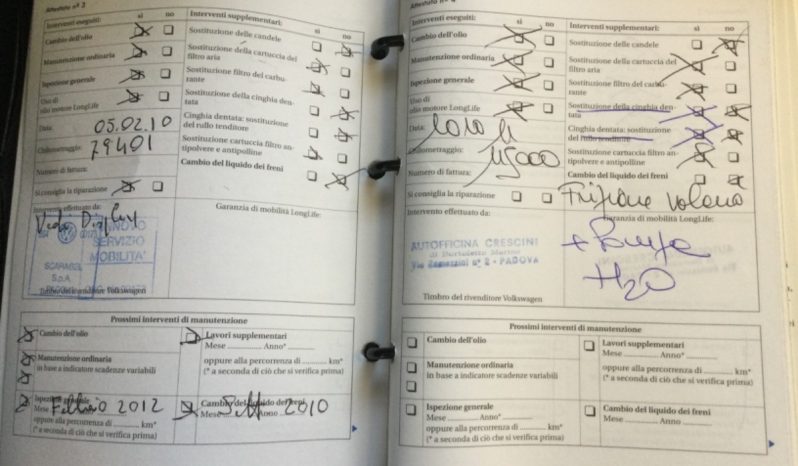 Attestato nº 3
Interventi eseguiti:
sì
no
Cambio dell'olio
Manutenzione ordinaria
Ispezione generale
Uso di
olio motore LongLife
Data:
05.02.10
Chilometraggio:
79401
Numero di fattura:
Si consiglia la riparazione
Intervento effettuato da:
SERVIZIO
MOBILITA'
S.p.A.
Timbro del rivenditore Volkswagen
Interventi supplementari:
sì
no
Sostituzione delle candele
Sostituzione della cartuccia del
filtro aria
Sostituzione filtro del carbu-
rante
Sostituzione della cinghia den-
tata
Cinghia dentata: sostituzione
del rullo tenditore
Sostituzione cartuccia filtro an-
tipolvere e antipolline
Cambio del liquido dei freni
Garanzia di mobilità LongLife:
Prossimi interventi di manutenzione
Cambio dell'olio
Manutenzione ordinaria
in base a indicatore scadenze variabili
Ispezione generale
Mese Febbraio 2012
oppure alla percorrenza di ........... km*
(* a seconda di ciò che si verifica prima)
Lavori supplementari
Mese ............ Anno* ............
oppure alla percorrenza di ........... km*
(* a seconda di ciò che si verifica prima)
Cambio del liquido dei freni
Mese Sett Anno 2010
Interventi eseguiti:
sì
no
Cambio dell'olio
Manutenzione ordinaria
Ispezione generale
Uso di
olio motore LongLife
Data:
Chilometraggio:
115000
Numero di fattura:
Si consiglia la riparazione
Intervento effettuato da:
AUTOFFICINA CRESCINI
di Bortoletto Marino
Via Gemezzini nº 2 - PADOVA
Timbro del rivenditore Volkswagen
Interventi supplementari:
sì
no
Sostituzione delle candele
Sostituzione della cartuccia del
filtro aria
Sostituzione filtro del carbu-
rante
Sostituzione della cinghia den-
tata
Cinghia dentata: sostituzione
del rullo tenditore
Sostituzione cartuccia filtro an-
tipolvere e antipolline
Cambio del liquido dei freni
Frizione volano
Garanzia di mobilità LongLife:
+ Pompa
H2O
Prossimi interventi di manutenzione
Cambio dell'olio
Manutenzione ordinaria
in base a indicatore scadenze variabili
Ispezione generale
Mese ............ Anno* ............
oppure alla percorrenza di ........... km*
(* a seconda di ciò che si verifica prima)
Lavori supplementari
Mese ............ Anno* ............
oppure alla percorrenza di ........... km*
(* a seconda di ciò che si verifica prima)
Cambio del liquido dei freni
Mese ............ Anno ............